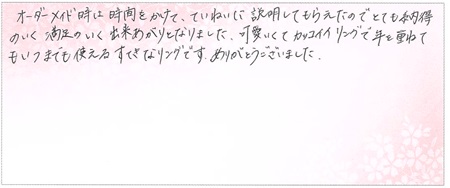 オーダーメイド時は時間をかけて、ていねいに説明してもらえたのでとても納得
のいく満足のいく出来あがりとなりました。可愛いくてカッコイイリングで年を重ねて
もいつまでも使えるすてきなリングです。ありがとうございました。